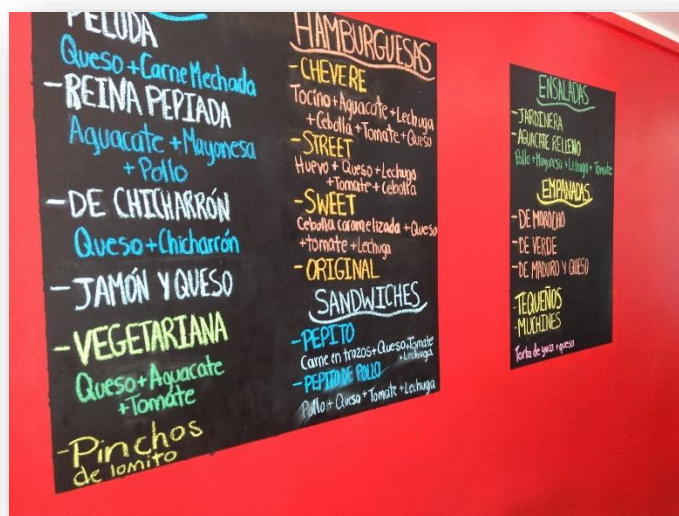 PELUDA
Queso + Carne Mechada
- REINA PEPIADA
Aguacate + Mayonesa
+ Pollo
- DE CHICHARRÓN
Queso + Chicharrón
- JAMÓN Y QUESO
- VEGETARIANA
Queso + Aguacate
+ Tomate
- Pinchos
de lomito
HAMBURGUESAS
- CHEVERE
Tocino + Aguacate + Lechuga
+ Cebolla + Tomate + Queso
- STREET
Huevo + Queso + Lechuga
+ Tomate + Cebolla
- SWEET
Cebolla caramelizada + Queso
+ tomate + Lechuga
- ORIGINAL
SANDWICHES
- PEPITO
Carne en trozos + Queso + Tomate
+ Lechuga
- PEPITO DE POLLO
Pollo + Queso + Tomate + Lechuga
ENSALADAS
- JARDINERA
- AGUACATE RELLENO
Pollo + Mayonesa + Lechuga + Tomate
EMPANADAS
- DE MOROCHO
- DE VERDE
- DE MADURO Y QUESO
- TEQUEÑOS
- MUCHINES
Torta de yuca + queso